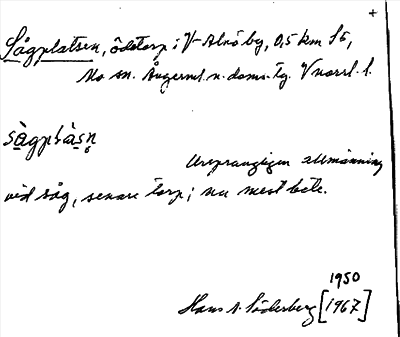 +
Sågplatsen, ödetorp i V Alnö by, 0,5 km SÖ,
Alnö sn. Ångerml. n. doms. tg. V norrl. l.
sàgplàsn̥
Ursprungligen allmänning
vid såg, senare torp; nu mest bete.
1950
Hans A. Söderberg [1967]